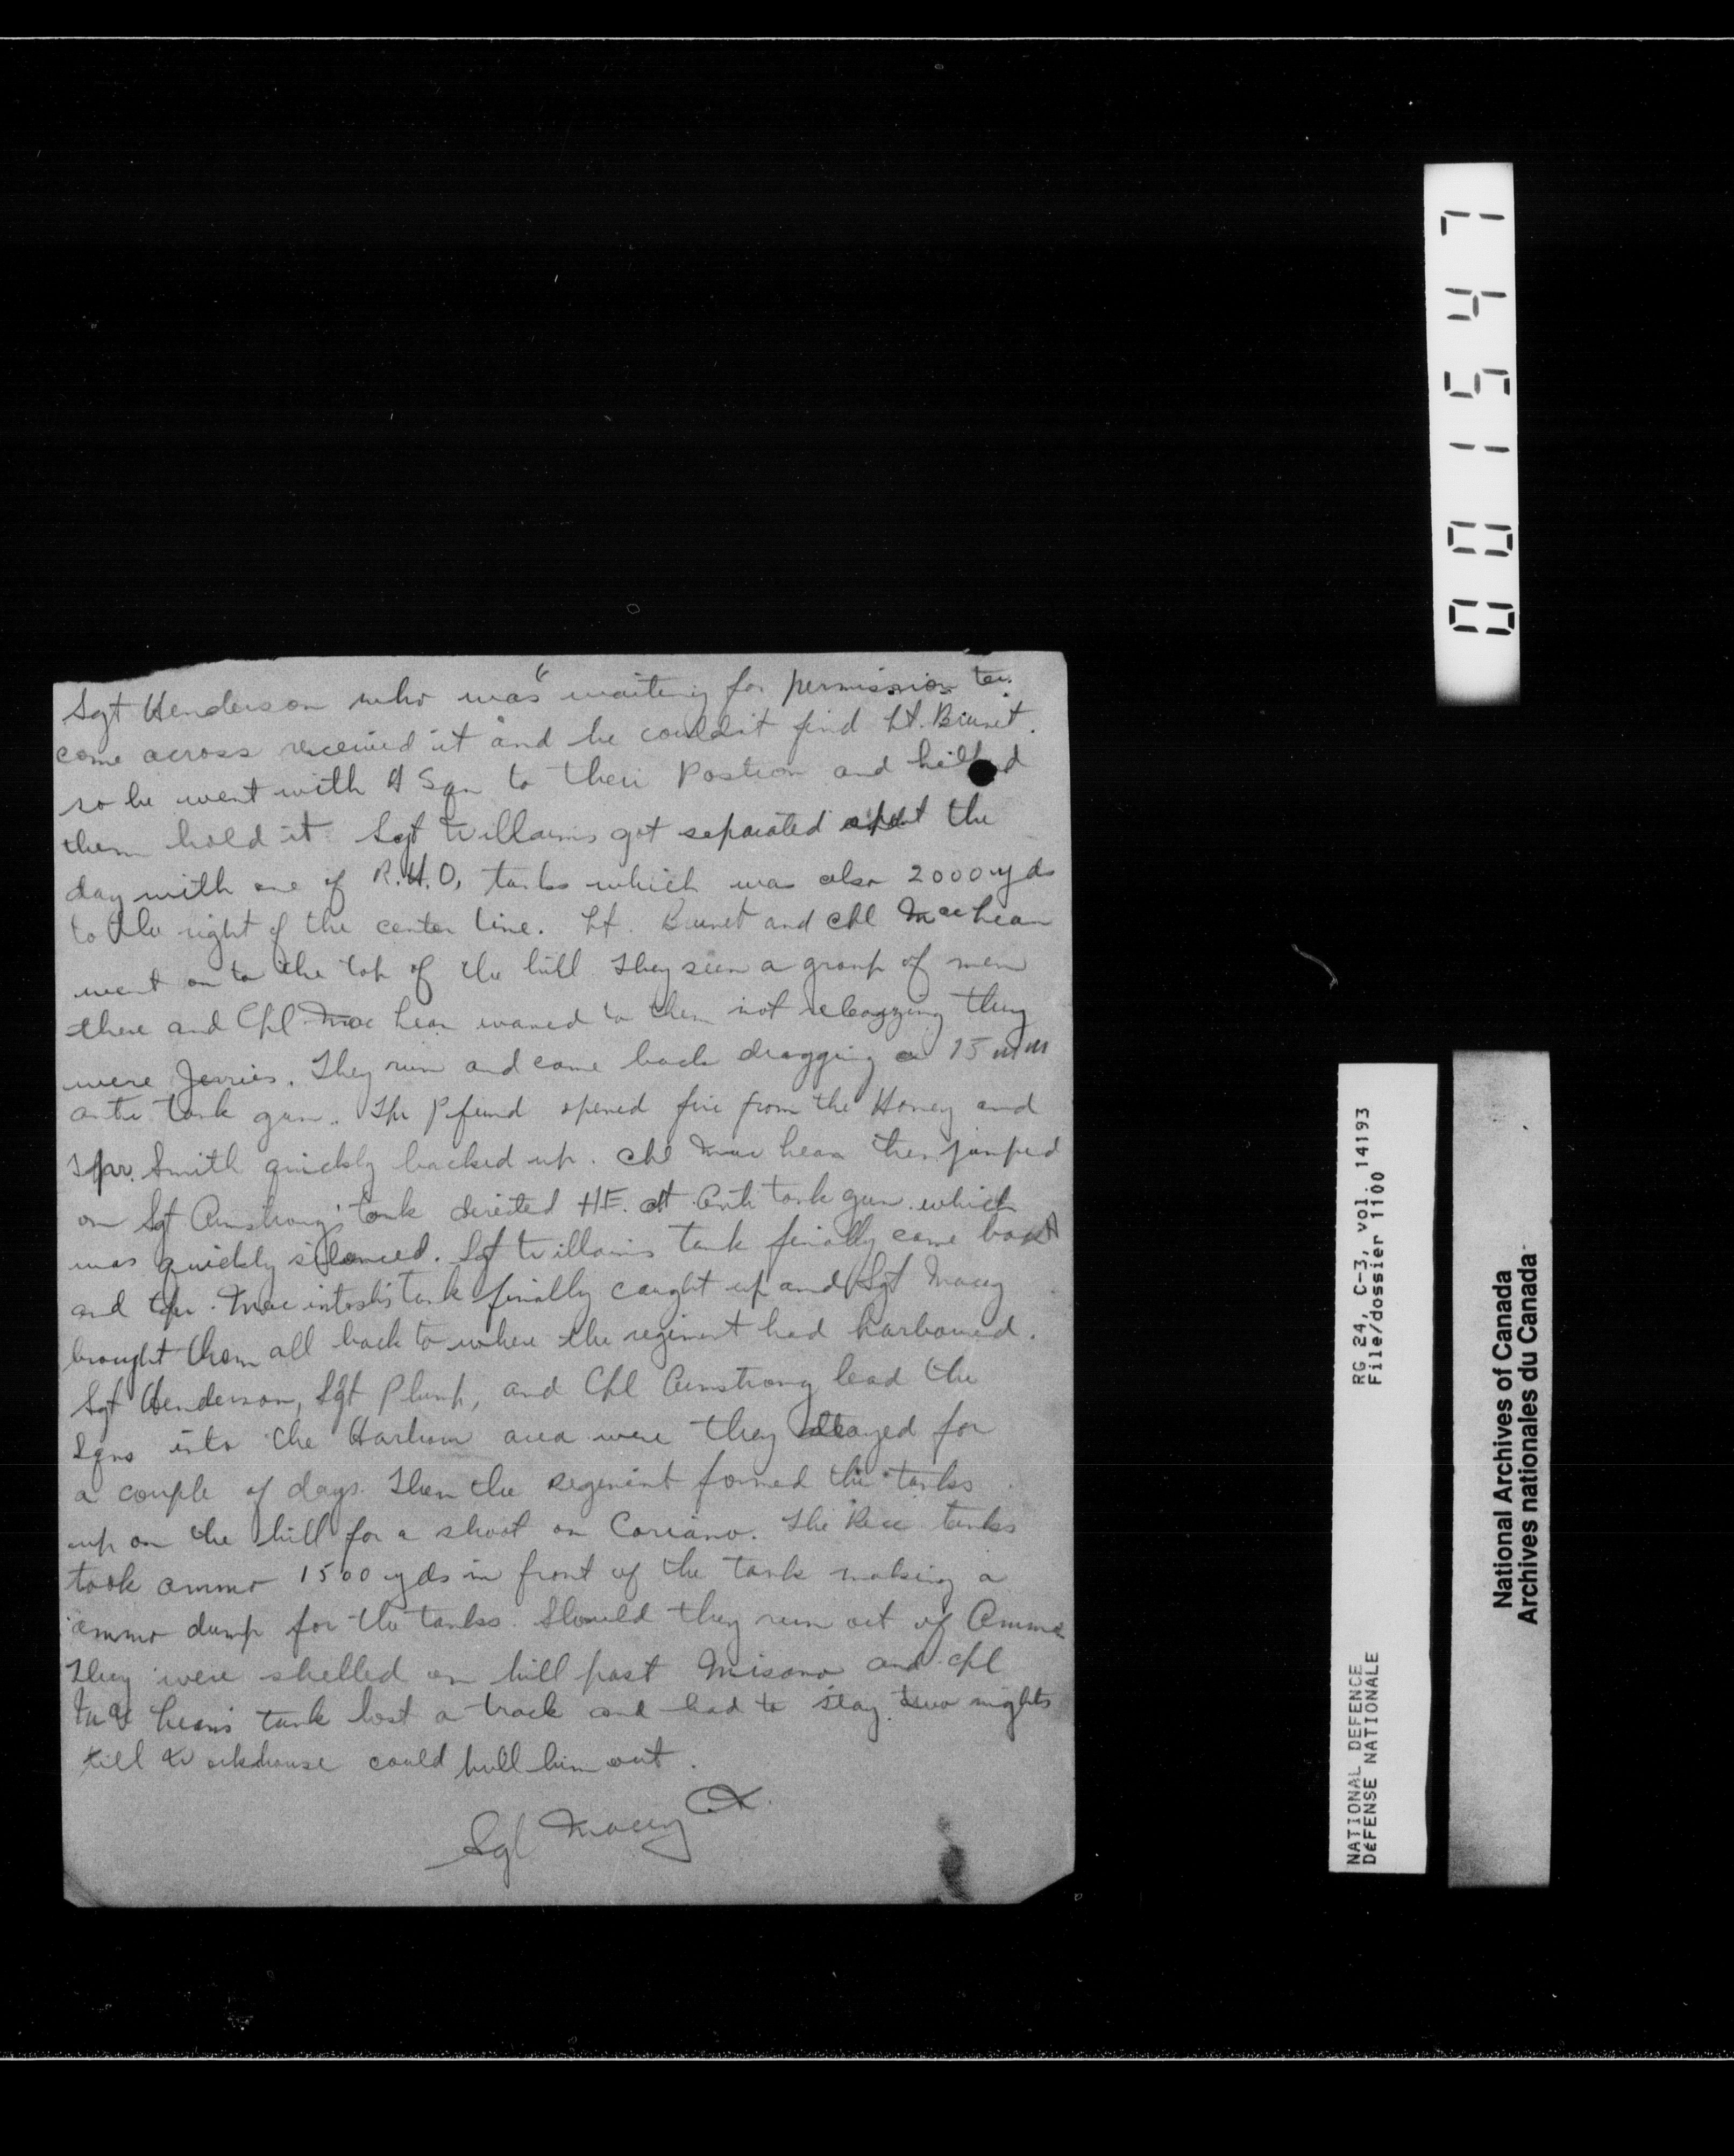 6
Sgt Henderson who was waiting for permission to
come across received it and he couldnt find Lt. Brunet.
so he went with A Sqn to their Postion and helped
them hold it. Sgt Williams got separated spent the
day with one of R.H.Q. tanks which was also 2000 yds
to the right of the center line. Lt. Brunet and Cpl MacLean
went on to the top of the hill They seen a group of men
there and Cpl Mac Lean waved to them not they
were Jerries. They run and come back dragging a 75 mm
anti tank gun. Tpr Pfund opened fire from the Honey and
Tpr. Smith quickly backed up. Cpl Mac Lean then jumped
on Sgt Armstrong's tank directed H.E. at Anti tank gun which
was quickly silenced. Sgt Williams tank finally come back
and Tpr. Mac intoshs tank finally caught up and Sgt Macey
brought them all back to where the regiment had harboured.
Sgt Henderson, Sgt Plump, and Cpl Armstrong lead the
Sqns into the Harbour area were they stayed for
a couple of days. Then the Regiment formed the tanks
up on the hill for a shoot on Coriano. The Rece tanks
took ammo 1500 yds in front of the tank making a
ammo dump for the tanks. Should they run out of Ammo
They were shelled on hill past Misano and Cpl
Mac Lean's tank lost a track and had to stay two nights
till Workhouse could pull him out.
Sgt Macey
0011547
RG 24, C-3, vol. 14193
File/dossier 1100
NATIONAL DEFENCE
DéFENSE NATIONALE
National Archives of Canada
Archives nationales du Canada